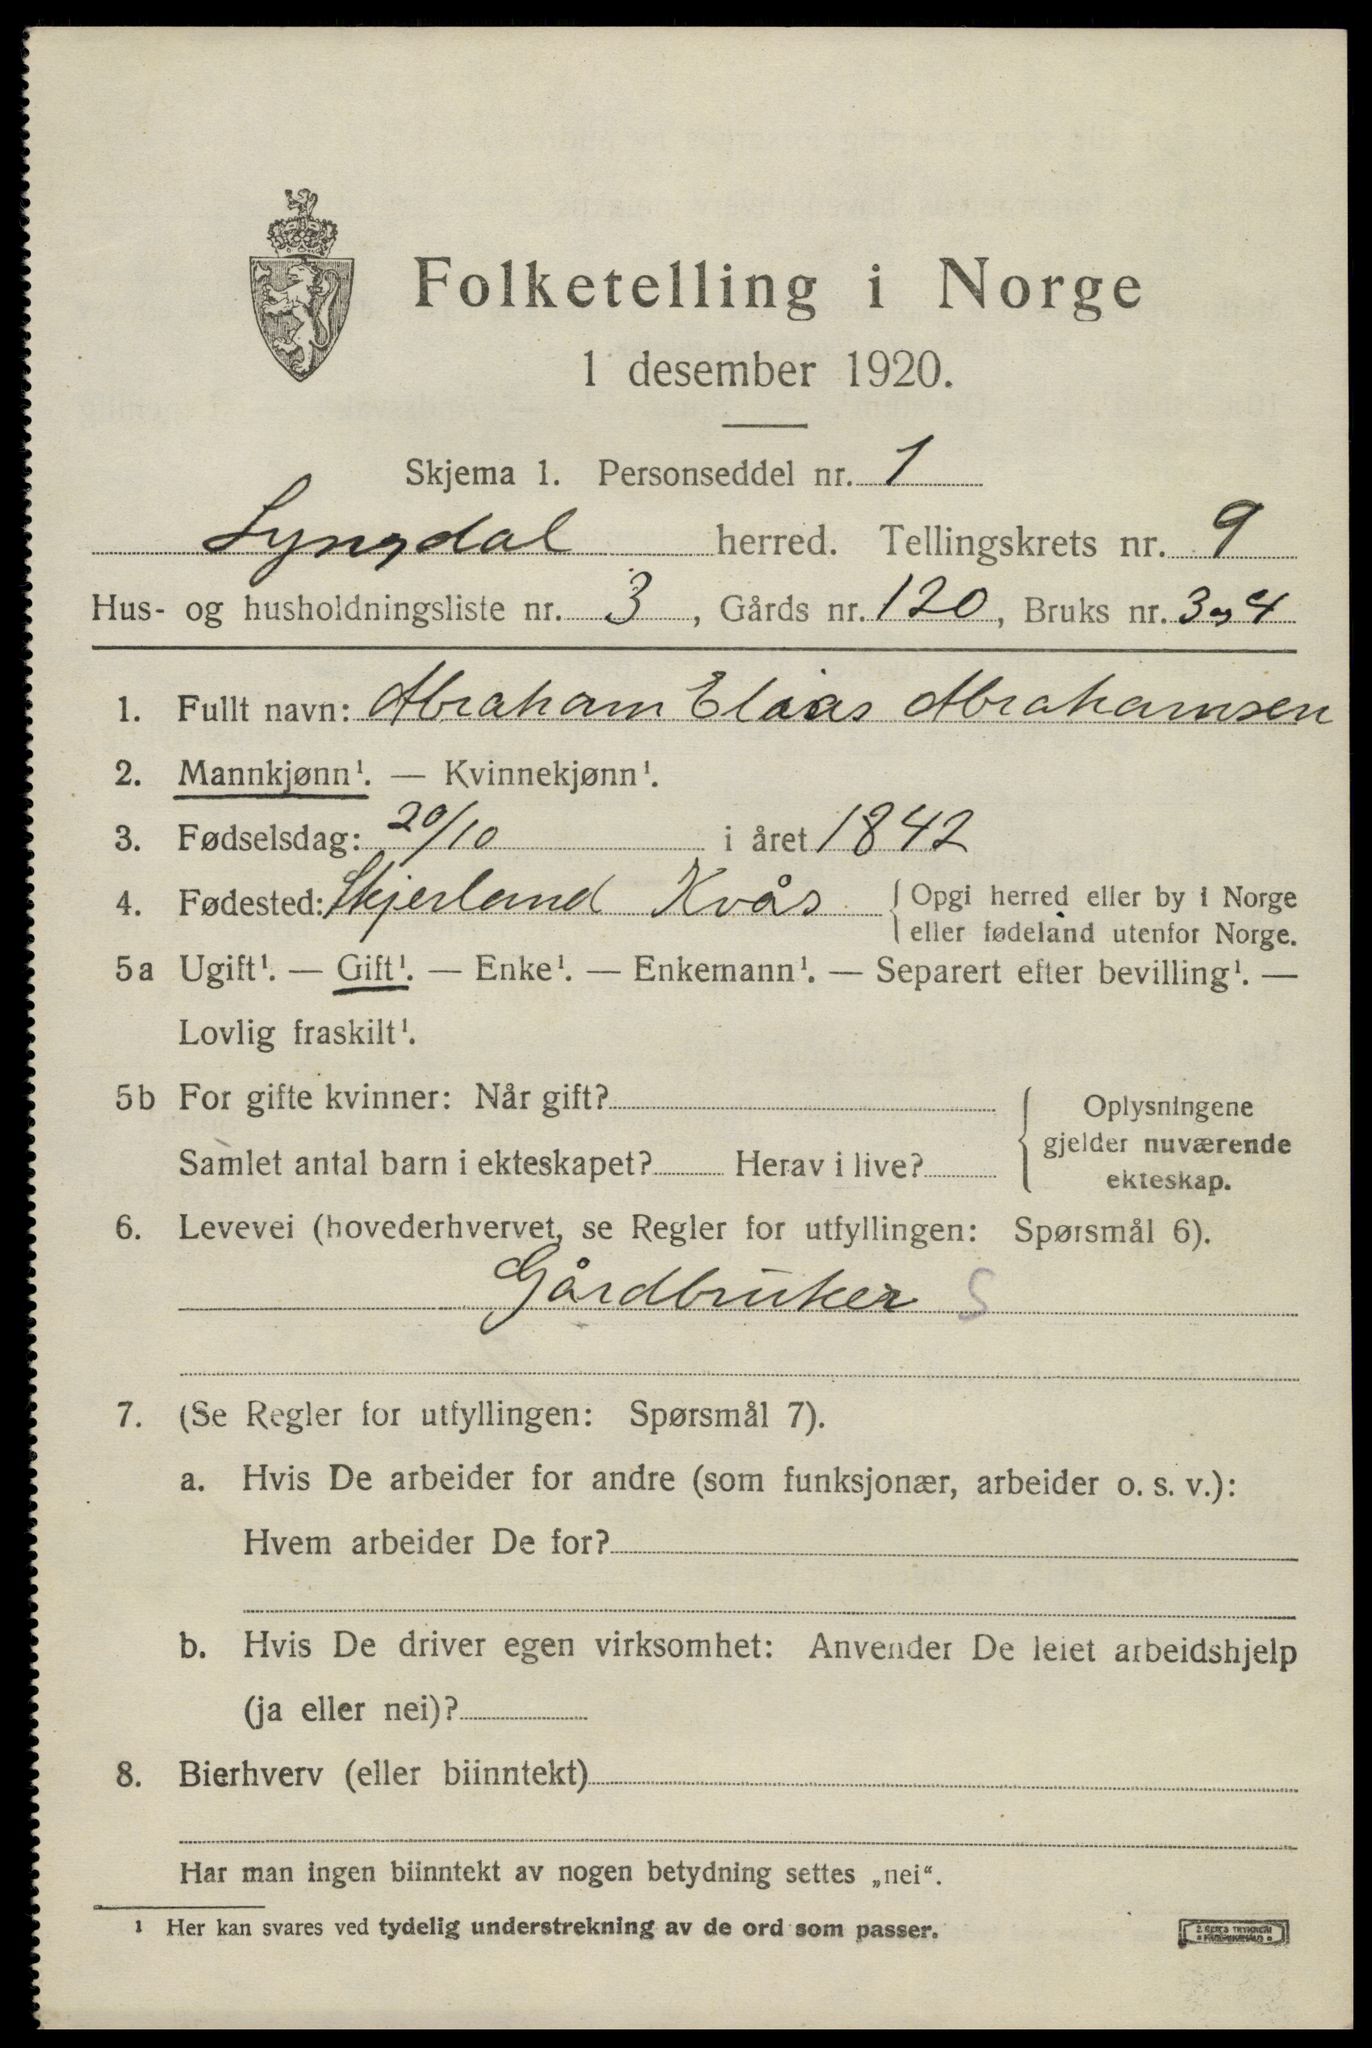 Folketelling i Norge
1 desember 1920.
Skjema 1. Personseddel nr. 1
Lyngdal herred. Tellingskrets nr. 9
Hus- og husholdningsliste nr. 3, Gårds nr. 120, Bruks nr. 3 og 4
1. Fullt navn: Abraham Elias Abrahamsen
2. Mannkjønn¹. — Kvinnekjønn¹.
3. Fødselsdag: 20/10 i året 1842
4. Fødested: Skjerland Kvås { Opgi herred eller by i Norge
eller fødeland utenfor Norge.
5a Ugift¹. — Gift¹. — Enke¹. — Enkemann¹. — Separert efter bevilling¹. —
Lovlig fraskilt¹.
5b For gifte kvinner: Når gift?
Samlet antal barn i ekteskapet? Herav i live?
{ Oplysningene
gjelder nuværende
ekteskap.
6. Levevei (hovederhvervet, se Regler for utfyllingen: Spørsmål 6).
Gårdbruker S
7. (Se Regler for utfyllingen: Spørsmål 7).
a. Hvis De arbeider for andre (som funksjonær, arbeider o. s. v.):
Hvem arbeider De for?
b. Hvis De driver egen virksomhet: Anvender De leiet arbeidshjelp
(ja eller nei)?
8. Bierhverv (eller biinntekt)
Har man ingen biinntekt av nogen betydning settes „nei“.
¹ Her kan svares ved tydelig understrekning av de ord som passer.